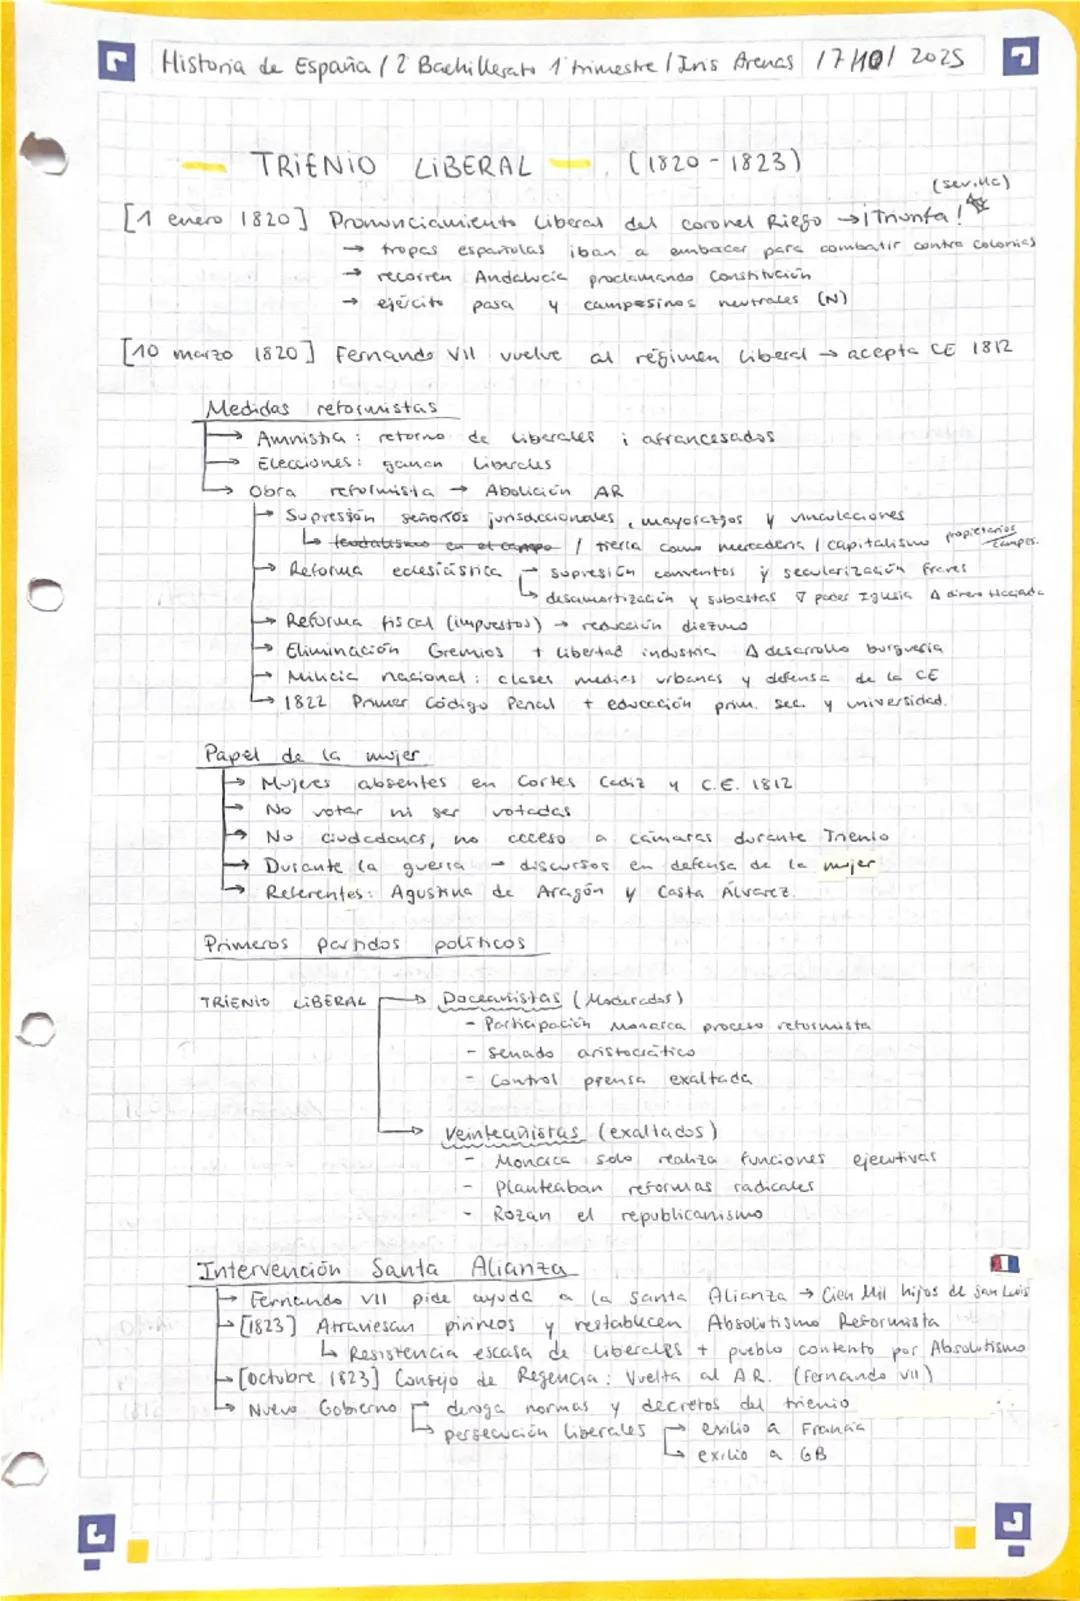 Historia de España / 2 Bachillerato 1 trimestre / Iris Arenas 17/10/2025
TRIENIO LIBERAL (1820-1823)
(Sevilla)
[1 enero 1820] Pronunciamiento liberal del coronel Riego → ¡Triunfa!
→ tropas españolas iban a embarcar para combatir contra colonias
→ recorren Andalucía proclamando Constitución
→ ejército pasa y campesinos neutrales (N)
[10 marzo 1820] Fernando VII vuelve al régimen liberal → acepta CE 1812
Medidas reformistas
→ Amnistía: retorno de liberales i afrancesados
→ Elecciones: ganan liberales
→ Obra reformista → Abolición AR
→ Supresión señoríos jurisdiccionales, mayorazgos y vinculaciones
↳ feudalismo en el campo / tierra como mercadería / capitalismo propietarios campes.
→ Reforma eclesiástica → supresión conventos y secularización frares
↳ desamortización y subastas ∇ poder Iglesia Δ dinero Hacienda
→ Reforma fiscal (impuestos) → reducción diezmo
→ Eliminación Gremios + libertad industria Δ desarrollo burguesía
→ Milicia nacional: clases medias urbanas y defensa de la CE
→ 1822 Primer Código Penal + educación prim. sec. y universidad.
Papel de la mujer
→ Mujeres absentes en Cortes Cadiz y C.E. 1812
→ No votar ni ser votadas
→ No ciudadanas, no acceso a cámaras durante Trienio
→ Durante la guerra - discursos en defensa de la mujer
→ Referentes: Agustina de Aragón y Casta Álvarez.
Primeros partidos políticos
TRIENIO LIBERAL → Doceañistas (Moderados)
- Participación Monarca proceso reformista
- Senado aristocrático
- Control prensa exaltada
→ Veinteañistas (exaltados)
- Monarca solo realiza funciones ejecutivas
- Planteaban reformas radicales
- Rozan el republicanismo
Intervención Santa Alianza
→ Fernando VII pide ayuda a la Santa Alianza → Cien Mil hijos de San Luis
→ [1823] Atraviesan pirineos y restablecen Absolutismo Reformista
↳ Resistencia escasa de liberales + pueblo contento por Absolutismo
→ [Octubre 1823] Consejo de Regencia: Vuelta al A.R. (Fernando VII)
→ Nuevo Gobierno → deroga normas y decretos del trienio
↳ persecución liberales → exilio a Francia
↳ exilio a GB